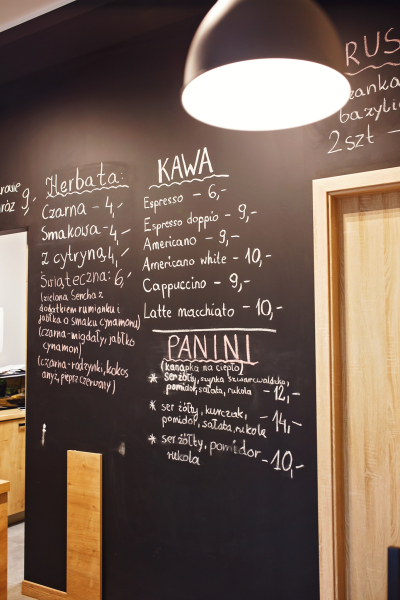 9,-
Herbata:
Czarna - 4,-
Smakowa - 4,-
z cytryną 4,-
Świąteczna: 6,-
(zielona Sencha z
dodatkiem rumianku i
jabłka o smaku cynamonu)
(czarna-migdały, jabłko
cynamon)
(czarna-rodzynki, kokos
anyż, pieprz czerwony)
KAWA
Espresso - 6,-
Espresso doppio - 9,-
Americano - 9,-
Americano white - 10,-
Cappuccino - 9,-
Latte macchiato - 10,-
PANINI
(kanapka na ciepło)
* ser żółty, szynka szwarcwaldzka,
pomidor, sałata, rukola - 12,-
* ser żółty, kurczak,
pomidor, sałata, rukola - 14,-
* ser żółty, pomidor
rukola - 10,-
RUS
2szt -